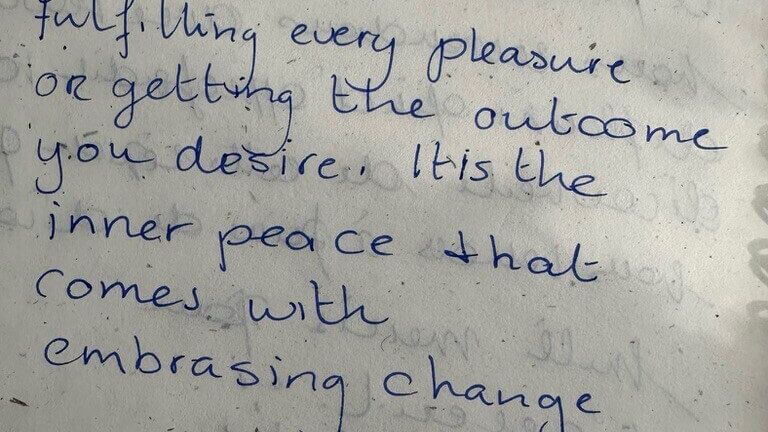 fulfilling every pleasure
or getting the outcome
you desire. It is the
inner peace that
comes with
embrasing change